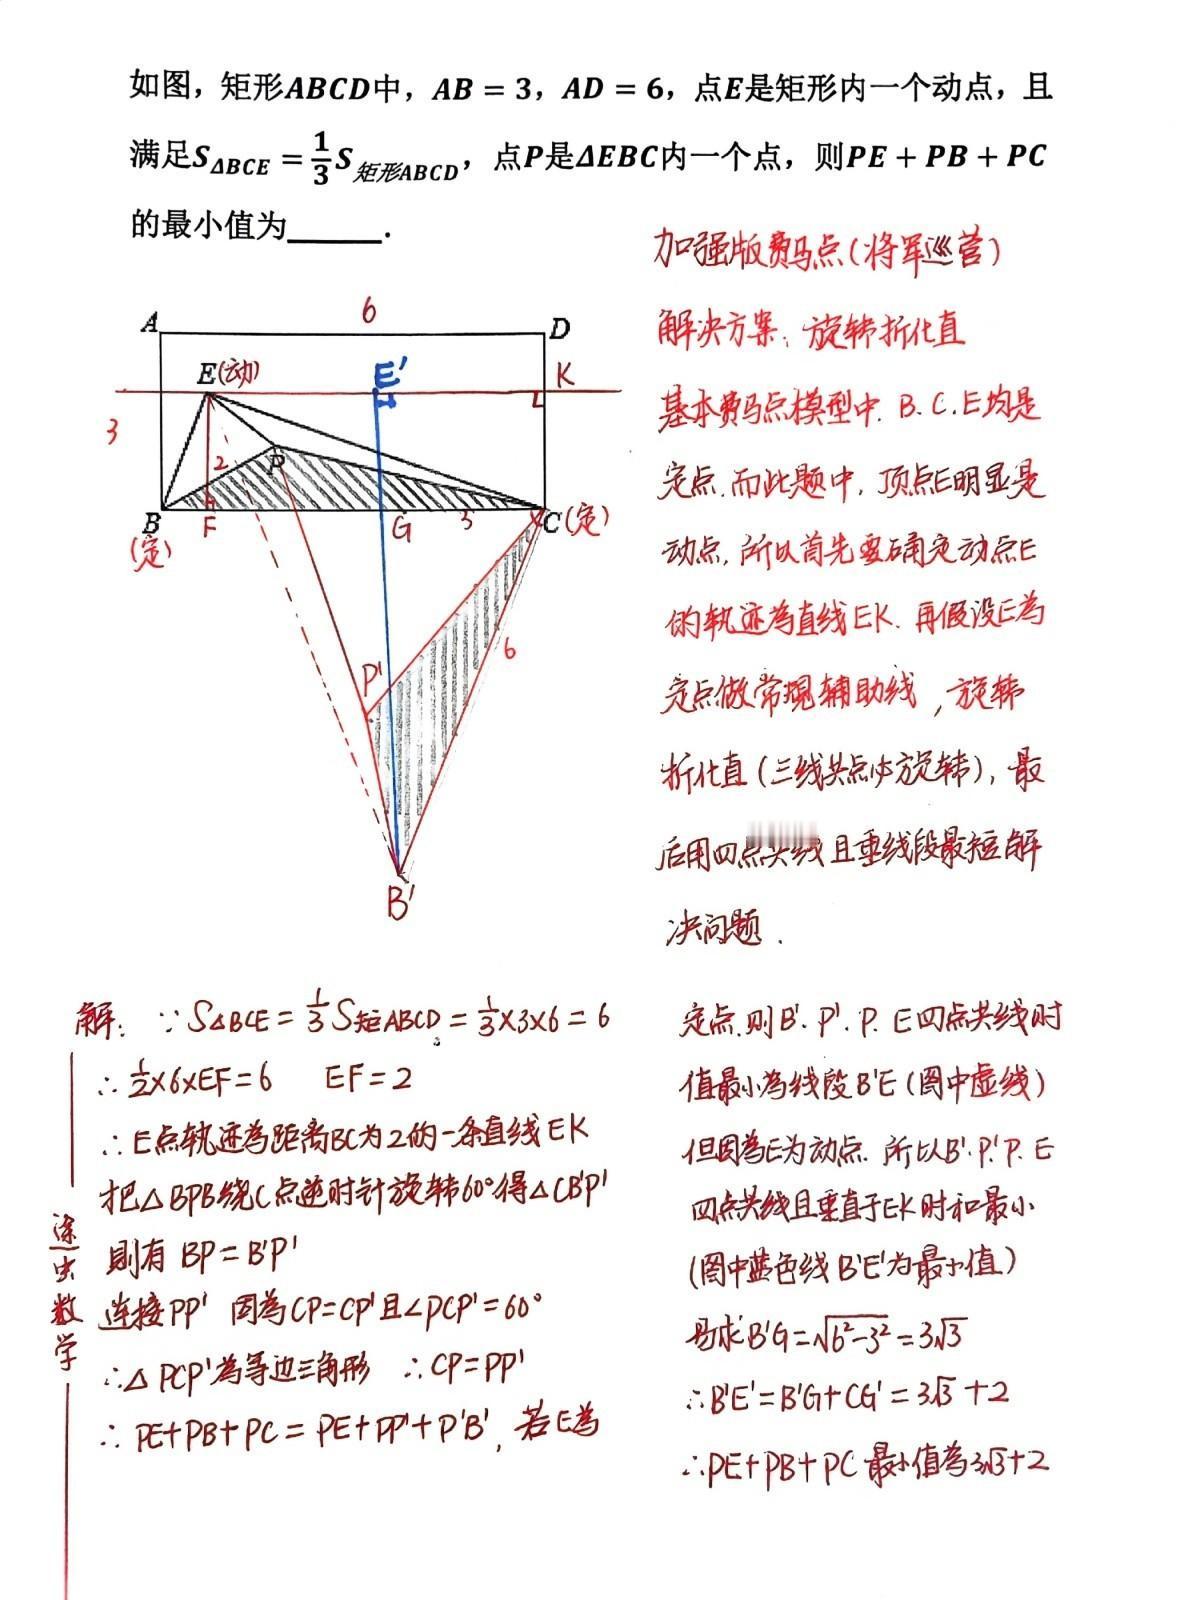 如图，矩形ABCD中，AB = 3，AD = 6，点E是矩形内一个动点，且
满足S△BCE = 1/3 S矩形ABCD，点P是ΔEBC内一个点，则PE + PB + PC
的最小值为______.
加强版费马点(将军巡营)
解决方案：旋转折化直
基本费马点模型中. B. C. E均是
定点.而此题中，顶点E明显是
动点.所以首先要确定动点E
的轨迹為直线EK. 再假设E為
定点做常规辅助线，旋转
折化直(三线共点必旋转)，最
后用四点共线且垂线段最短解
决问题.
A
6
D
E(动)
E'
K
3
2
P
B
(定)
F
G
3
C(定)
P'
6
B'
解： ∵ S△BCE = 1/3 S矩ABCD = 1/3×3×6 = 6
∴ 1/2×6×EF=6 EF=2
∴E点轨迹為距离BC为2的一条直线EK
把△BPB绕C点逆时针旋转60°得△CB'P'
則有 BP=B'P'
连接PP' 因為CP=CP'且∠PCP'=60°
∴△PCP'為等边三角形 ∴CP=PP'
∴ PE+PB+PC = PE+PP'+P'B'，若E為
涂虫数学
定点.则B'. P'. P. E四点共线时
值最小為线段B'E(图中虚线)
但因為E为动点.所以B'.P'.P.E
四点共线且垂直于EK时和最小
(图中蓝色线B'E'为最小值)
易求B'G=√6²-3²=3√3
∴B'E'=B'G+CG'=3√3+2
∴PE+PB+PC最小值為3√3+2